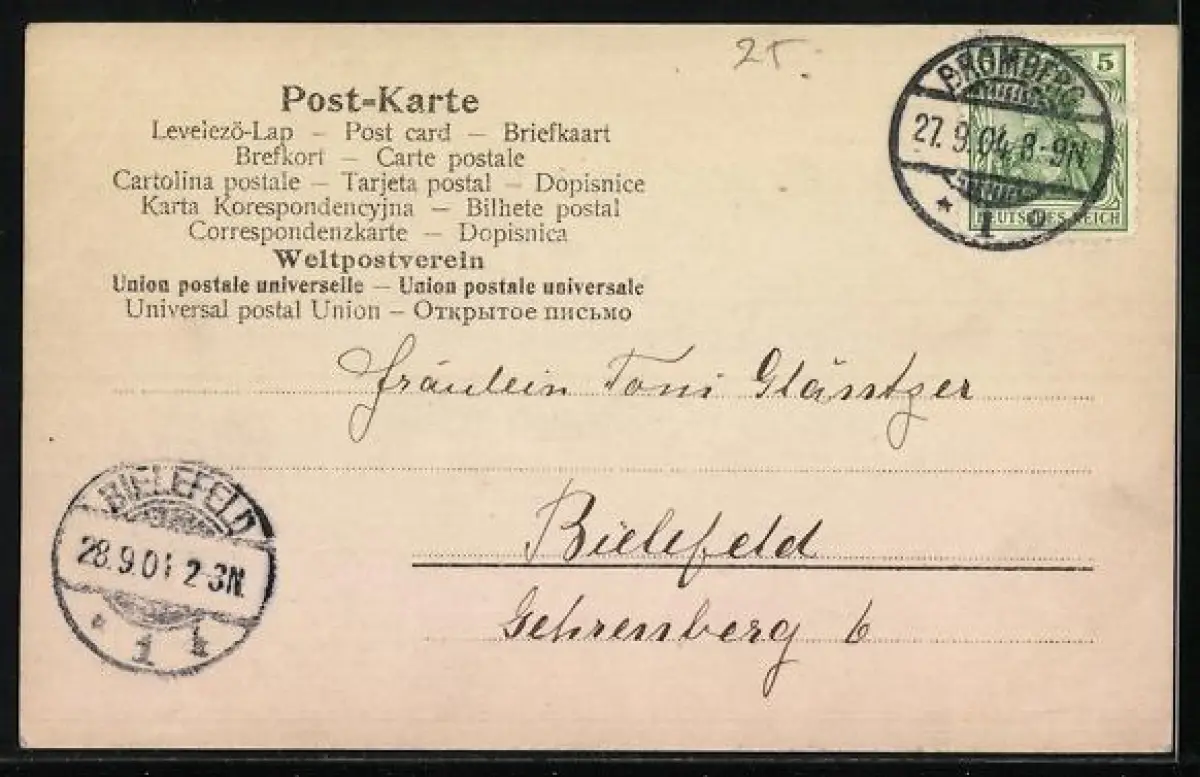 2T.
Post-Karte
Levelezö-Lap – Post card – Briefkaart
Brefkort – Carte postale
Cartolina postale – Tarjeta postal – Dopisnice
Karta Korespondencyjna – Bilhete postal
Correspondenzkarte – Dopisnica
Weltpostverein
Union postale universelle – Union postale universale
Universal postal Union – Открытое письмо
BROMBERG
27.9.04. 8-9N
* 1
5
DEUTSCHES REICH
Fräulein Toni Glässtzer
BIELEFELD
28.9.04 2-3N.
* 1 k
Bielefeld
Gehrenberg 6